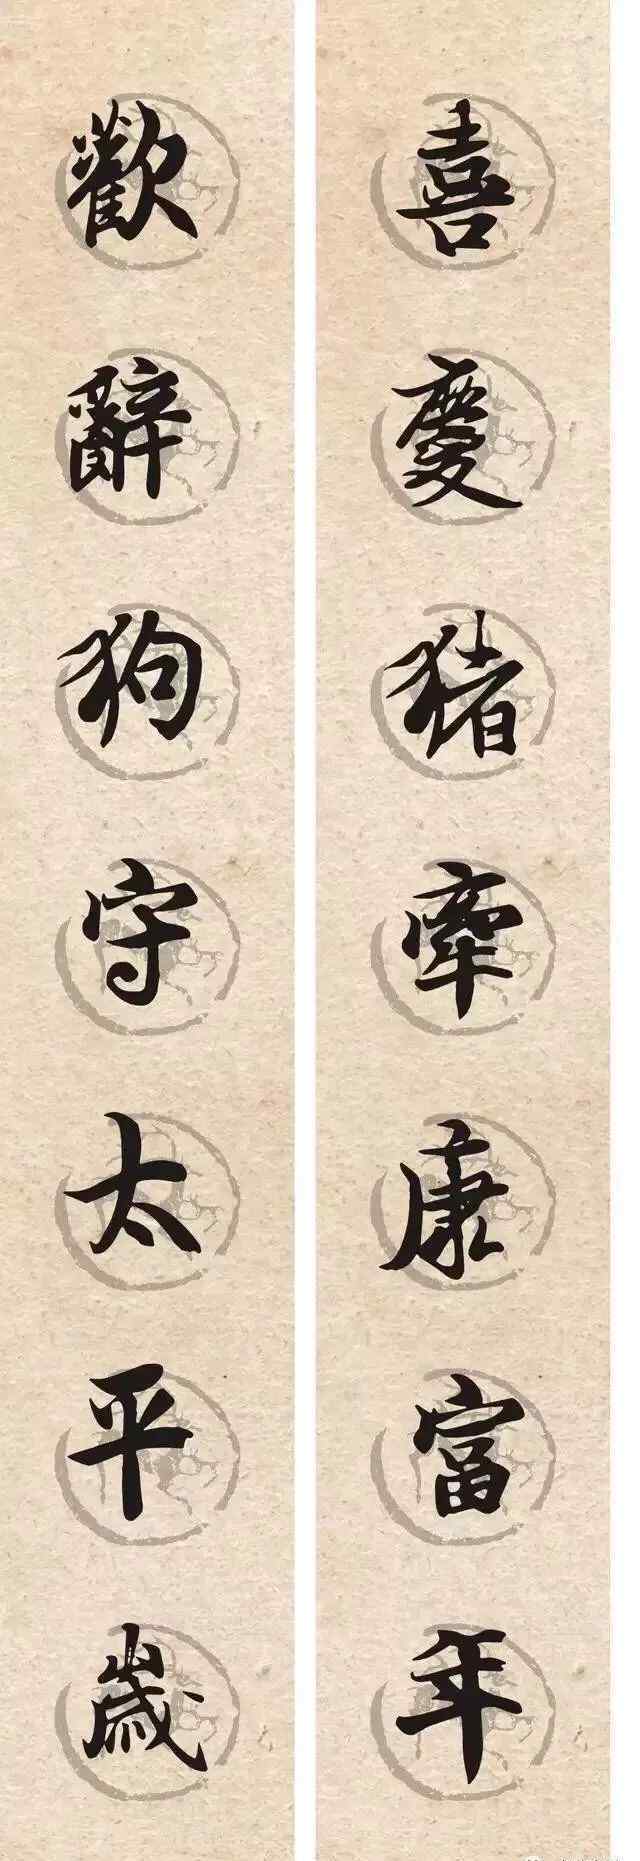 喜慶猪牽康富年
歡辭狗守太平歲